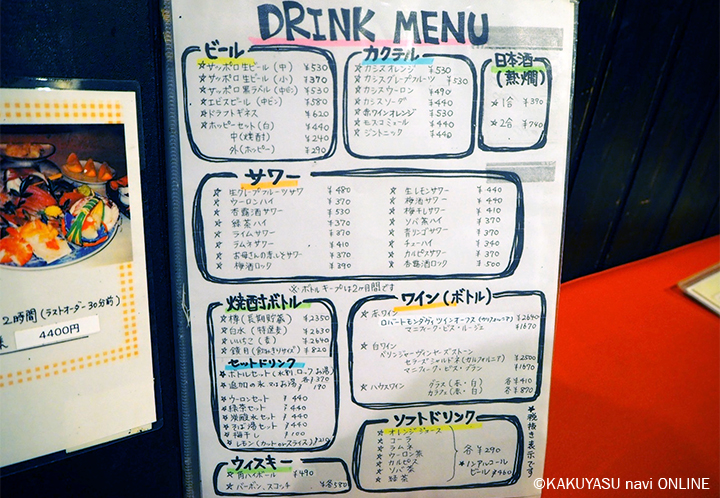 DRINK MENU
ビール
☆サッポロ生ビール(中) ¥530
☆サッポロ生ビール(小) ¥370
☆サッポロ黒ラベル(中ビン) ¥530
☆エビスビール(中ビン) ¥580
☆ドラフトギネス ¥620
☆ホッピーセット(白) ¥490
中(焼酎) ¥240
外(ホッピー) ¥290
カクテル
☆カシスオレンジ ¥530
☆カシスグレープフルーツ ¥530
☆カシスウーロン ¥490
☆カシスソーダ ¥440
☆赤ワインオレンジ ¥530
☆モスコミュール ¥440
☆ジントニック ¥440
日本酒
(熱燗)
☆1合 ¥390
☆2合 ¥740
サワー
☆生グレープフルーツサワー ¥480
☆ウーロンハイ ¥370
☆杏露酒サワー ¥530
☆緑茶ハイ ¥370
☆ライムサワー ¥370
☆ラムネサワー ¥410
☆お母さんの恋しそサワー ¥370
☆梅酒ロック ¥390
☆生レモンサワー ¥440
☆梅酒サワー ¥440
☆梅干しサワー ¥410
☆ソバ茶ハイ ¥370
☆青リンゴサワー ¥370
☆チューハイ ¥340
☆カルピスサワー ¥370
☆杏露酒ロック ¥500
※ボトルキープは2ヶ月間です
焼酎ボトル
☆樽(長期貯蔵) ¥2350
☆白水(特選麦) ¥2630
☆いいちこ(麦) ¥2640
☆鏡月(飲みきりサイズ) ¥820
セットドリンク
☆ボトルセット(水割、ロック、お湯)
各¥370
☆追加の氷 お湯 ¥190
☆ウーロンセット ¥440
☆緑茶セット ¥440
☆炭酸水セット ¥440
☆そば湯セット ¥440
☆梅干し ¥100
☆レモン(カット or スライス) ¥210
ウィスキー
☆角ハイボール ¥490
☆バーボン、スコッチ 各¥580
ワイン(ボトル)
☆赤ワイン
ロバートモンダヴィツインオークス(カリフォルニア) ¥2640
マニフィーク・ピス・ルージュ ¥1670
☆白ワイン
ベリンジャーヴィンヤーズストーン
セラーズシャルドネ(カルフォルニア) ¥2500
マニフィーク・ピス・ブラン ¥1670
☆ハウスワイン グラス(赤・白) 各¥410
カラフェ(赤・白) 各¥870
ソフトドリンク
☆オレンジジュース
☆コーラ
☆ラムネ
☆ウーロン茶
☆カルピス
☆ソバ茶
☆緑茶
各¥290
☆ノンアルコール
ビール ¥460
☆税抜き表示です
2時間(ラストオーダー30分前)
4400円
©KAKUYASU navi ONLINE